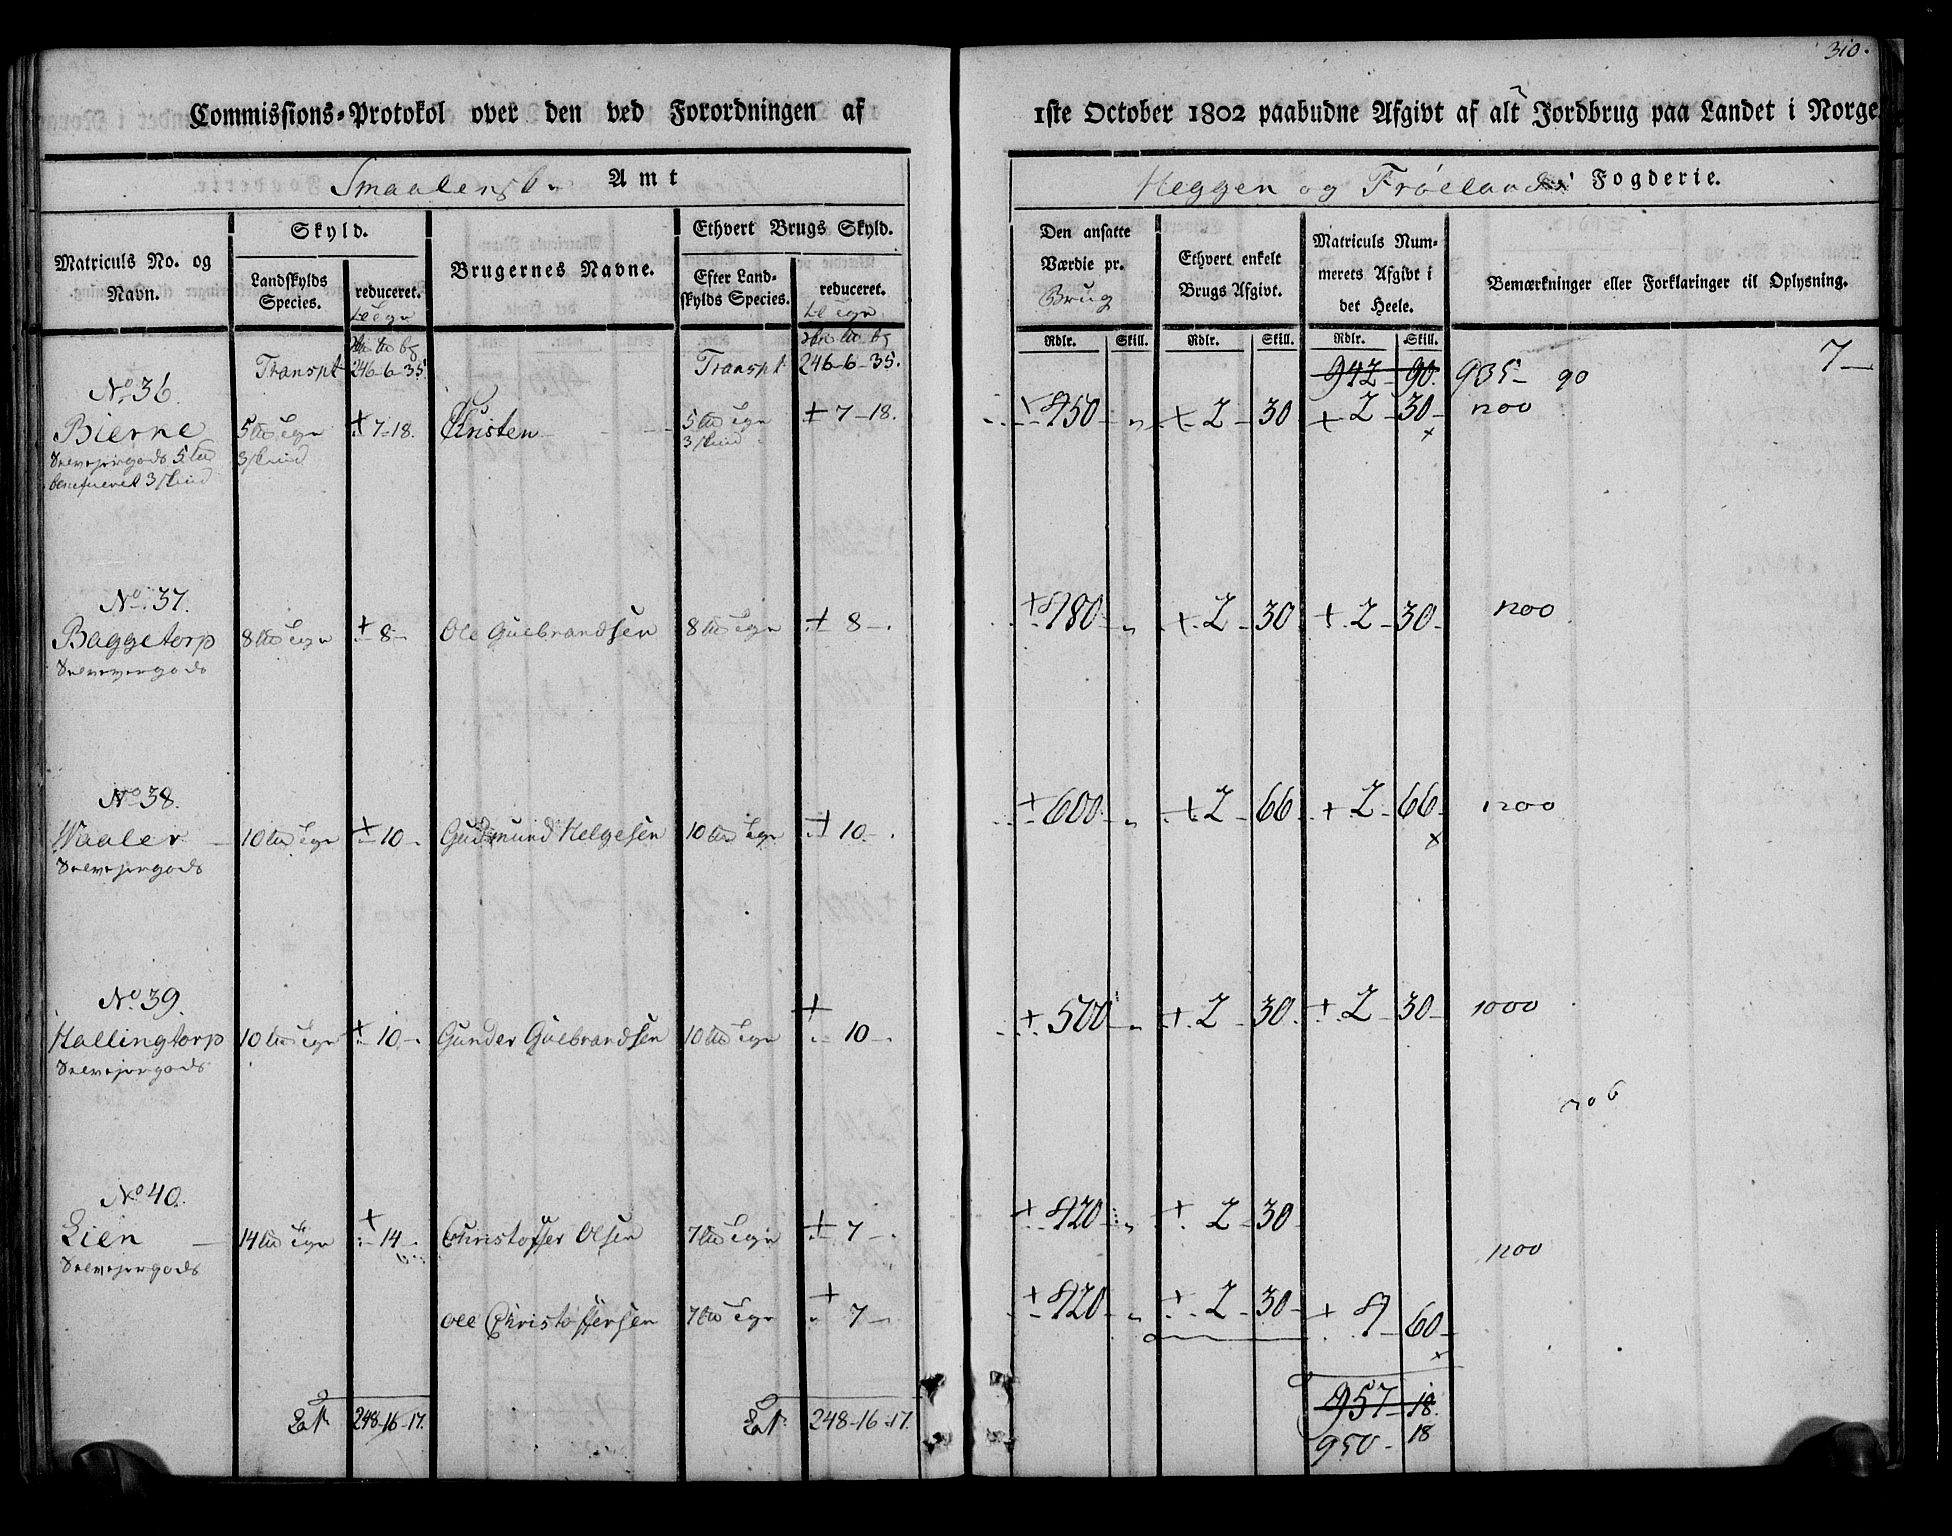 310.
Commissions-Protokol over den ved Forordningen af 1ste October 1802 paabudne Afgivt af alt Jordbrug paa Landet i Norge
Smaalenske Amt
Heggen og Frøeland Fogderie.
Matriculs No. og Navn.
Skyld.
Landskylds Species.
reduceret.
Brugernes Navne.
Ethvert Brugs Skyld.
Efter Landskylds Species.
reduceret.
Den ansatte Værdie pr. Brug
Ethvert enkelt Brugs Afgivt.
Matriculs Nummerets Afgivt i det Heele.
Bemærkninger eller Forklaringer til Oplysning.
Rdlr. Skill. Rdlr. Skill. Rdlr. Skill.
Transpt 246-6-35. Transpt 246-6-35. 942-90. 935- 90 7-
No. 36.
Bierne 5 7-18. Christen 5 7-18. 450 2-30 2-30 1200
3 skind 3 skind
No. 37.
Baggetorp 8 8- Ole Gulbrandsen 8 8- 480 2-30 2-30 1200
Selvejergods
No. 38.
Waaler 10 10- Gudmund Helgesen 10 10- 600 2-66 2-66 1200
Selvejergods
No. 39.
Hallingtorp 10 10- Gunder Gulbrandsen 10 10- 500 2-30 2-30 1000
Selvejergods
No. 40.
Lien 14 14- Christoffer Olsen 7 7- 420 2-30
Selvejergods 1200
Ole Christoffersen 7 7- 420 2-30 4-60
Lat. 248-16-17. Lat. 248-16-17. 957-18.
950- 18